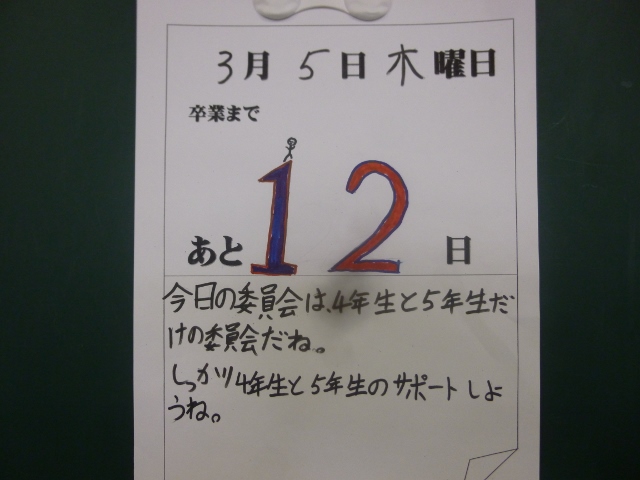 3月 5日 木曜日
卒業まで
あと 12 日
今日の委員会は、4年生と5年生だ
けの委員会だね。
しっかり4年生と5年生のサポートしよ
うね。